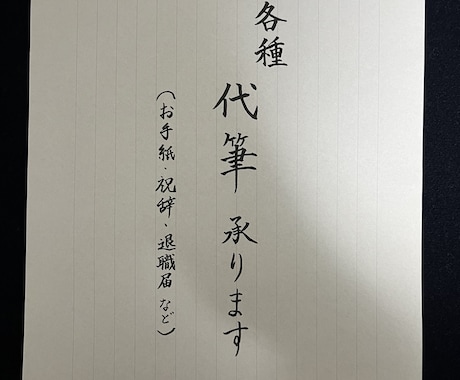 各種
代筆承ります
（お手紙・祝辞、退職届など）